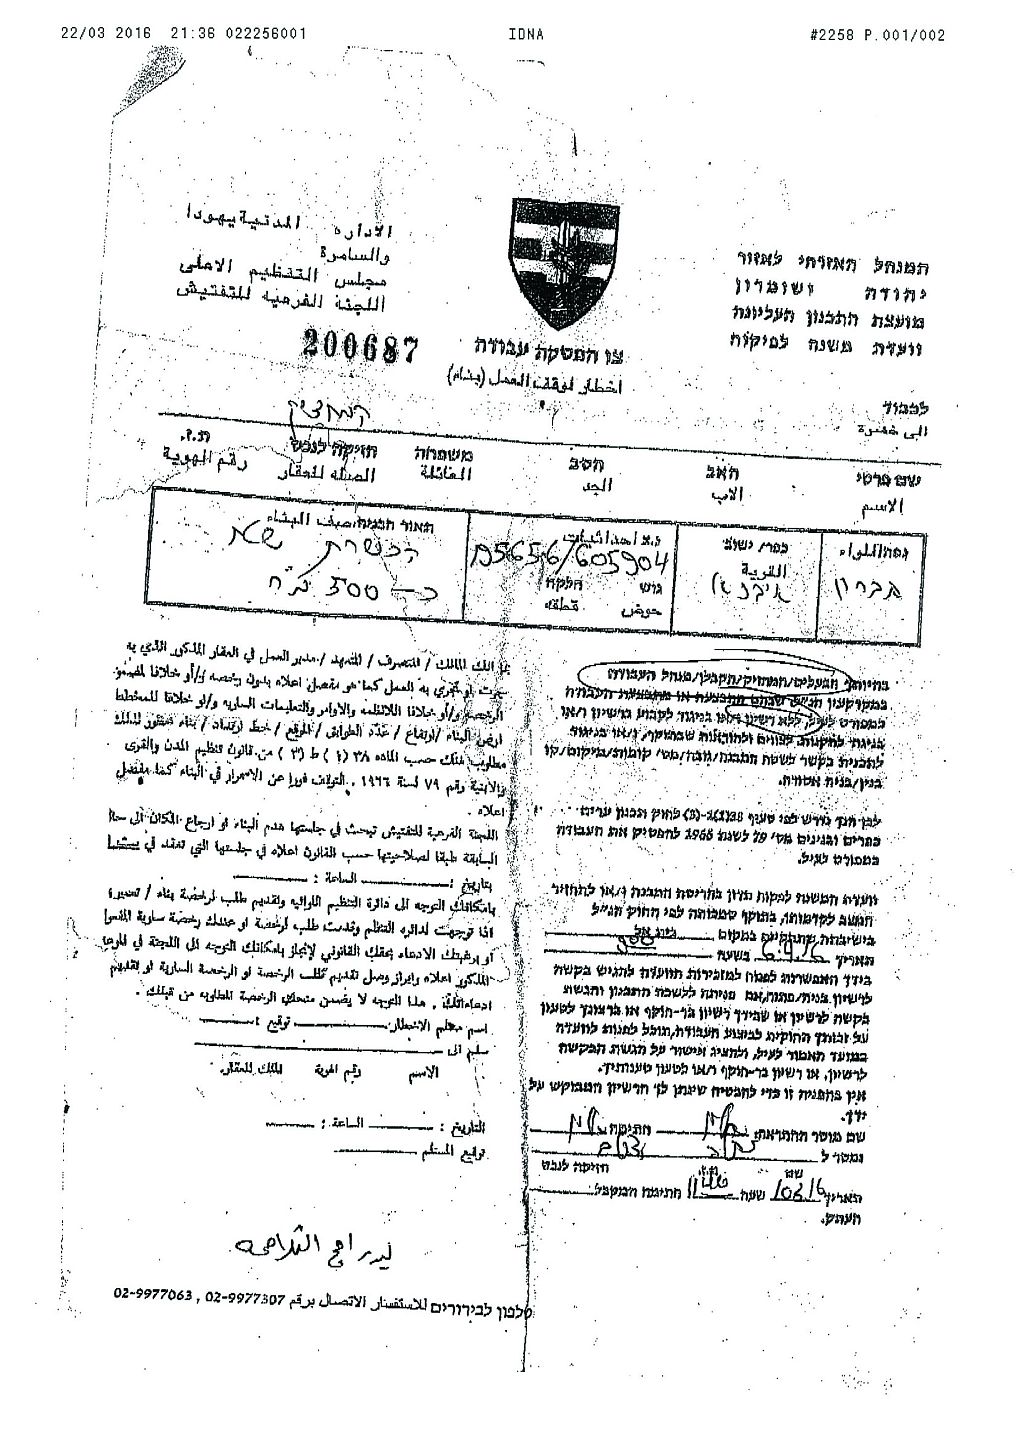 22/03 2016 21:36 022256001 IDNA #2258 P.001/002
המנהל האזרחי לאזור
יהודה ושומרון
מועצת התכנון העליונה
וועדת משנה לפיקוח
الاداره المدنية يهودا
والسامرة
مجلس التنظيم الاعلى
اللجنة الفرعيه للتفتيش
200687
צו הפסקת עבודה
اخطار لوقف العمل (بناء)
לכבוד
الى حضرة
המחזיק
שם פרטי האב הסב משפחה חזיקה לנכס ת.ז.
الاسم الاب الجد العائلة الصله للعقار رقم الهوية
נפה/اللواء
חברון
כפר/ישוב
القرية
נ.צ احداثيات
605904
גוש חלקה
حوض قطعه
תאור הבניה/صف البناء
הכשרת שטח
כ-500 מ"ר
בהיותך הבעלים/המחזיק/הקבלן/מנהל העבודה
במקרקעין הנ"ל שבהם התבצעה או מתבצעת העבודה
כמפורט לעיל, ללא רשיון ו/או בניגוד לקבוע ברשיון ו/או
בניגוד לתקנות לצווים ולהוראות שבתוקף, ו/או בניגוד
לתכנית בקשר לשטח המבנה/גובה/מס' קומות/מיקום/קו
בנין/בניה אסורה.
לכן הנך נדרש לפי סעיף 38(1)-(3) לחוק תכנון ערים
כפרים ובנינים מס' 79 לשנת 1966 להפסיק את העבודה
כמפורט לעיל.
וועדת המשנה לפקוח תדון בהריסת המבנה ו/או להחזיר
המצב לקדמותו, בתוקף סמכותה לפי החוק הנ"ל
בישיבתה שתתקיים במקום בית אל
תאריך 6.4.16 בשעה 900
בידך האפשרות לפנות למזכירות הוועדה להגיש בקשה
לרשיון בניה/פתוח, אם פנית ללשכת התכנון והגשת
בקשה לרשיון או שבידך רשיון בר-תוקף או ברצונך לטעון
על זכותך החוקית לביצוע העבודה, תוכל לפנות לוועדה
במועד האמור לעיל, ולהציג אישור על הגשת הבקשה
לרשיון, או רשיון בר-תוקף ו/או לטעון טענותיך.
אין בהפניה זו כדי להבטיח שינתן לך הרשיון המבוקש על
ידך.
שם מוסר ההתראה: חתימה
נמסר ל
שם ת.ז. חזיקה לנכס
תאריך שעה חתימת המקבל
העתק.
بما انك المالك / المتصرف / المتعهد / مدير العمل في العقار المذكور الذي به
جرت او تجري به العمل كما هو مفصل اعلاه بدون رخصه و/أو خلافا لمضمون
الرخصه و/أو خلافا للانظمه والاوامر والتعليمات الساريه و/او خلافا للمخطط
ارض البناء / ارتفاع / عدد الطوابق / الموقع / خط ارتداد / بناء محظور لذلك
مطلوب منك حسب الماده ٣٨ (١) ط (٣) من قانون تنظيم المدن والقرى
والابنية رقم ٧٩ لسنة ١٩٦٦. التوقف فورا عن الاستمرار في البناء كما مفصل
اعلاه.
اللجنة الفرعية للتفتيش تبحث في جلستها هدم البناء او ارجاع المكان الى حالته
السابقة طبقا لصلاحيتها حسب القانون اعلاه في جلستها التي تعقد في
بتاريخ: الساعة:
بامكانك التوجه الى دائرة التنظيم اللوائيه وتقديم طلب لرخصة بناء / تعميره
اذا توجهت لدائره التنظيم وقدمت طلب لرخصة او عندك رخصة سارية المفعول
او برغبتك الادعاء بحقك القانوني لإنجاز بامكانك التوجه الى اللجنة في الموعد
المذكور اعلاه وابراز وصل تقديم طلب الرخصة او الرخصة السارية او تقديم
ادعاءاتك. هذا التوجه لا يضمن منحك الرخصة المطلوبه من قبلك.
اسم مسلم الاخطار: توقيع:
سلم الى
الاسم رقم الهوية المالك للعقار.
التاريخ: الساعة:
توقيع المستلم
טלפון לבירורים للاستفسار الاتصال برقم 02-9977307 , 02-9977063